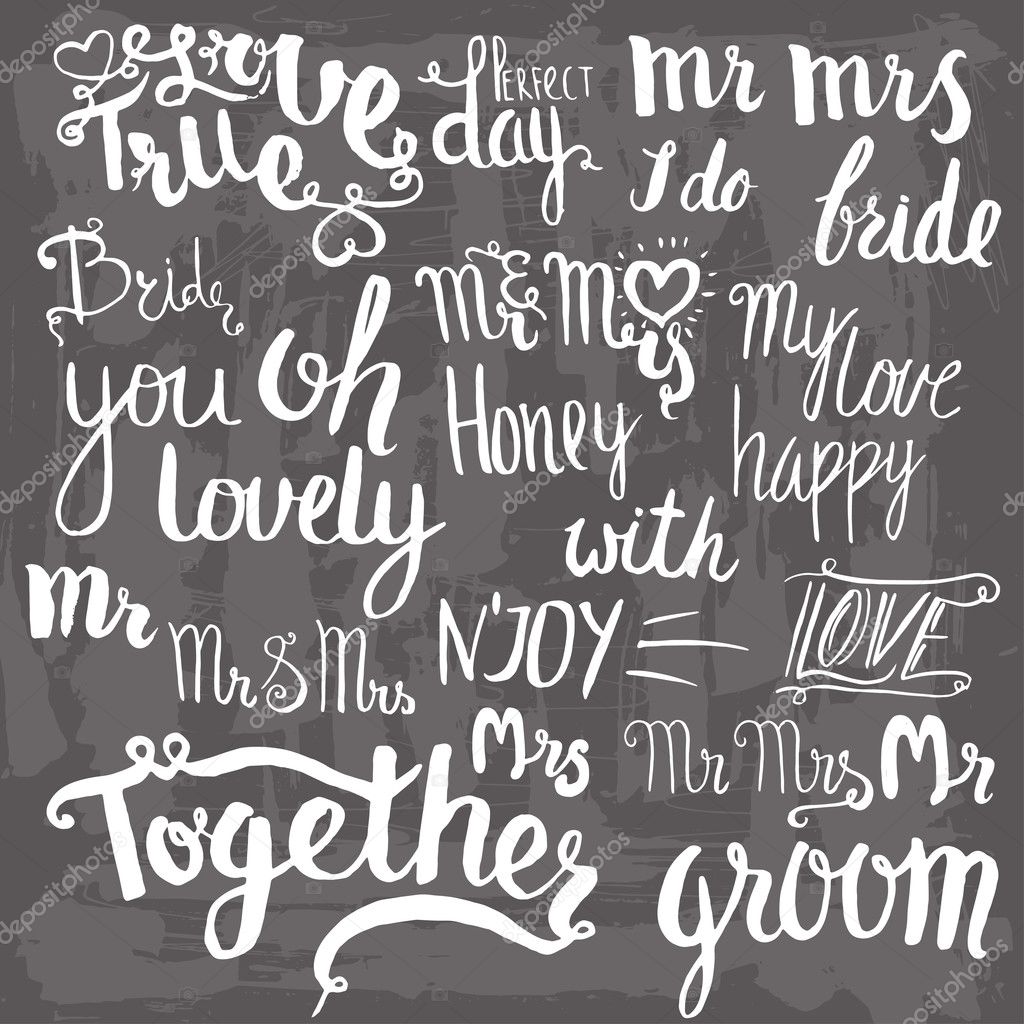 Love
True
Perfect
day
mr mrs
I do
bride
Bride
mr & mrs
you oh
lovely
My love
Honey
happy
with
mr
Mr & Mrs
N'JOY
LOVE
Mrs
Mr Mrs Mr
Together
groom
depositphotos